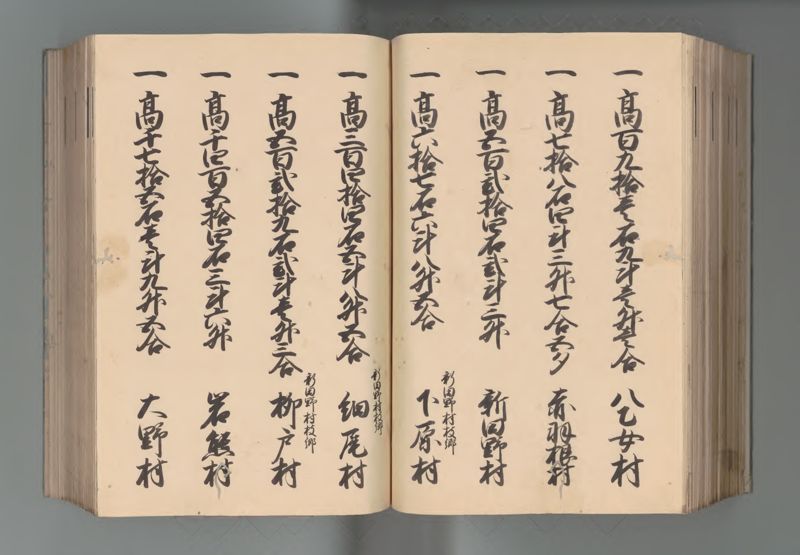 一 高百九拾壱石九斗壱升壱合 八乙女村
一 高七拾八石四斗三升七合五夕 赤羽根村
一 高五百弐拾四石弐斗三升 新田野村
新田野村枝郷
一 高六拾七石六斗八升五合 下原村
新田野村枝郷
一 高三百四拾四石五斗八升五合 細尾村
新田野村枝郷
一 高五百弐拾九石弐斗壱升三合 柳戸村
一 高千四百五拾四石三斗六升 岩熊村
一 高千七拾五石壱斗九升五合 大野村